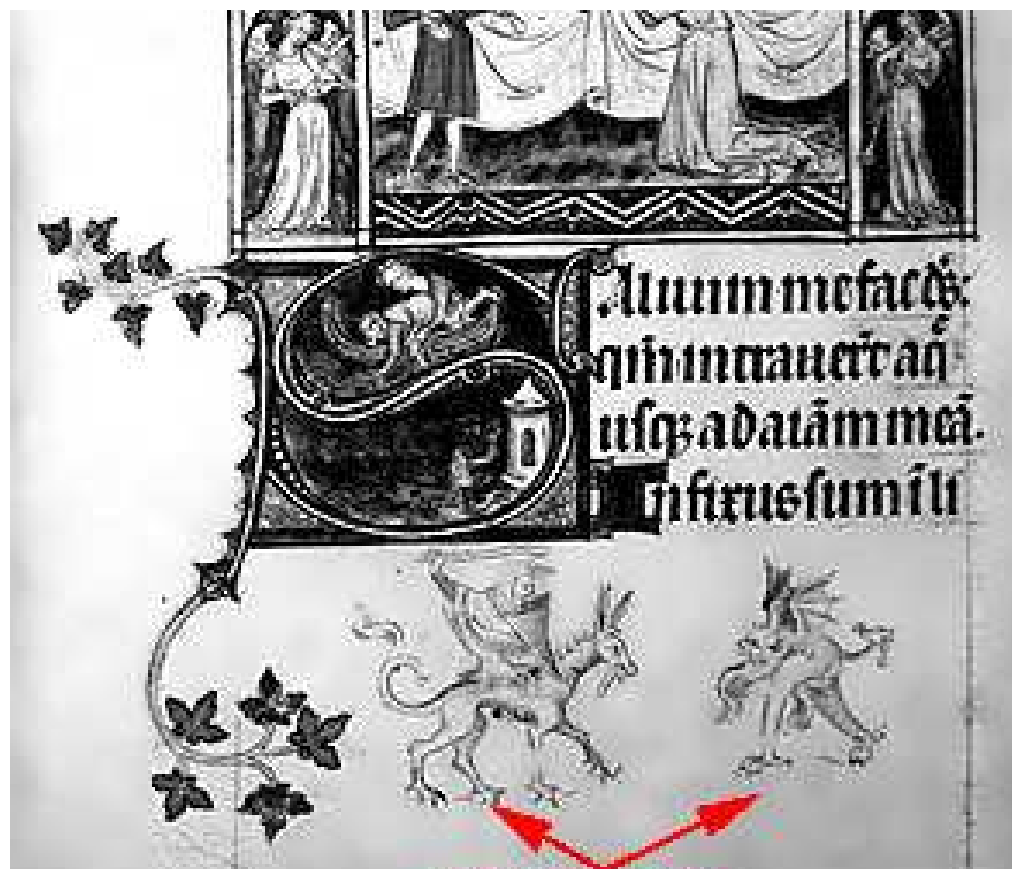 SAluum me fac ds̄:
qm̄ intrauer̄t aq̄
usq; ad aiām meā.
Infixus sum ī li